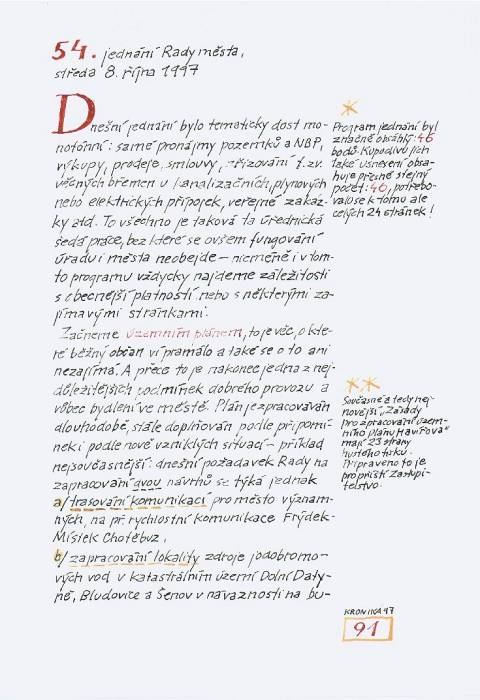 54. jednání Rady města,
středa 8. října 1997
Dnešní jednání bylo tematicky dost mo-
notónní: samé pronájmy pozemků a NBP,
výkupy, prodeje, smlouvy, zřizování t.zv.
věcných břemen u kanalizačních, plynových
nebo elektrických přípojek, veřejné zakáz-
ky atd. To všechno je taková ta úřednická
šedá práce, bez které se ovšem fungování
úřadu i města neobejde – nicméně i v tom-
to programu vždycky najdeme záležitosti
s obecnější platností nebo s některými za-
jímavými stránkami.
Začneme územním plánem, to je věc, o kte-
ré běžný občan ví pramálo a také se o to ani
nezajímá. A přece to je nakonec jedna z nej-
důležitějších podmínek dobrého provozu a
vůbec bydlení ve městě. Plán je zpracováván
dlouhodobě, stále doplňován podle připomí-
nek i podle nově vzniklých situací – příklad
nejsoučasnější: dnešní požadavek Rady na
zapracování dvou návrhů se týká jednak
a/ trasování komunikací pro město význam-
ných, na př. rychlostní komunikace Frýdek-
Místek Chotěbuz,
b/ zapracování lokality zdroje jodobromo-
vých vod v katastrálním území Dolní Daty-
ně, Bludovice a Šenov v návaznosti na bu-
*
Program jednání byl
značně obsáhlý: 46
bodů. Kupodivu jich
také usnesení obsa-
huje přesně stejný
počet: 46, potřebo-
valo se k tomu ale
celých 24 stránek!
**
Současné a tedy nej-
novější „Zásady
pro zpracování územ-
ního plánu Havířova"
mají 23 strany
hustého tisku.
Připraveno to je
pro příští Zastupi-
telstvo.
KRONIKA 97
91